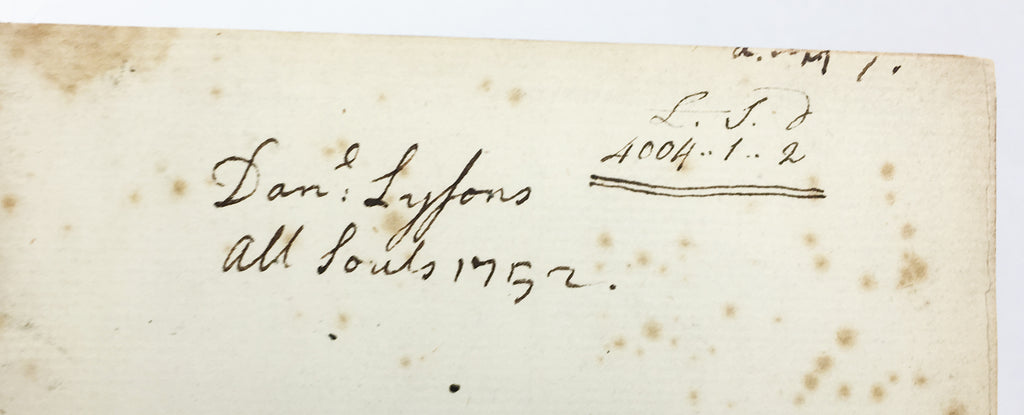 L. S. d
4004..1..2
Dan^l: Lysons
All Souls 1752.